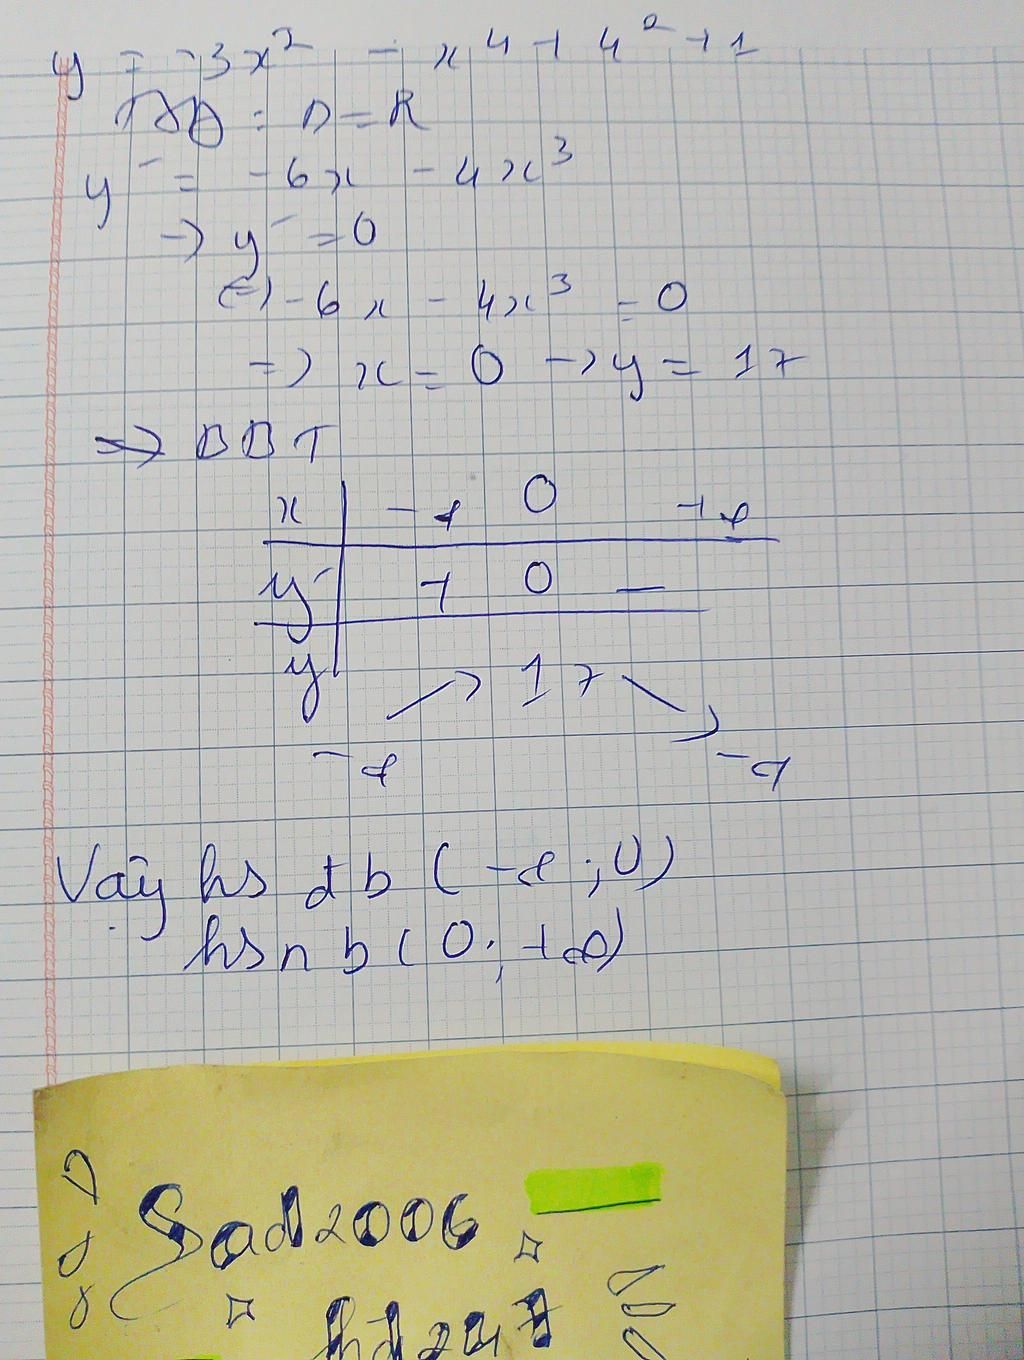 y = -3x² - x⁴ + 4² + 1
TXĐ : D = R
y' = -6x - 4x³
→ y' = 0
(=) -6x - 4x³ = 0
=> x = 0 → y = 17
=> BBT
x -∞ 0 +∞
y' + 0 -
y 17
-∞ -∞
Vậy hs đb (-∞ ; 0)
hs nb (0 ; +∞)
Sad2006
hd247